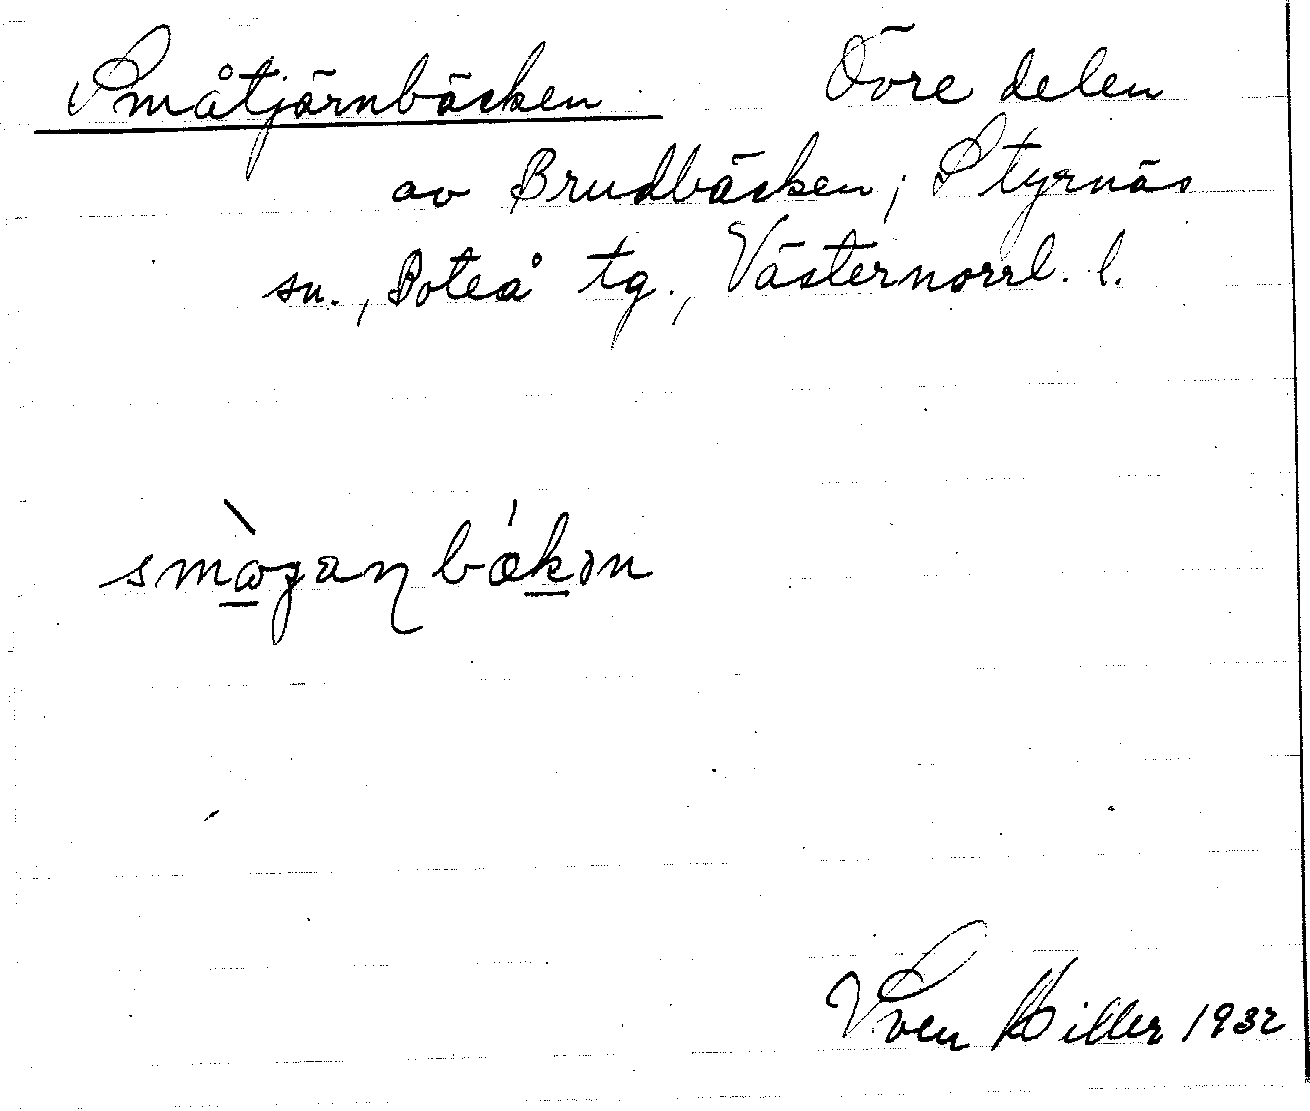 Småtjärnbäcken Övre delen
av Brudbäcken, Styrnäs
sn., Boteå tg., Västernorrl. l.
Sven Hiller 1932